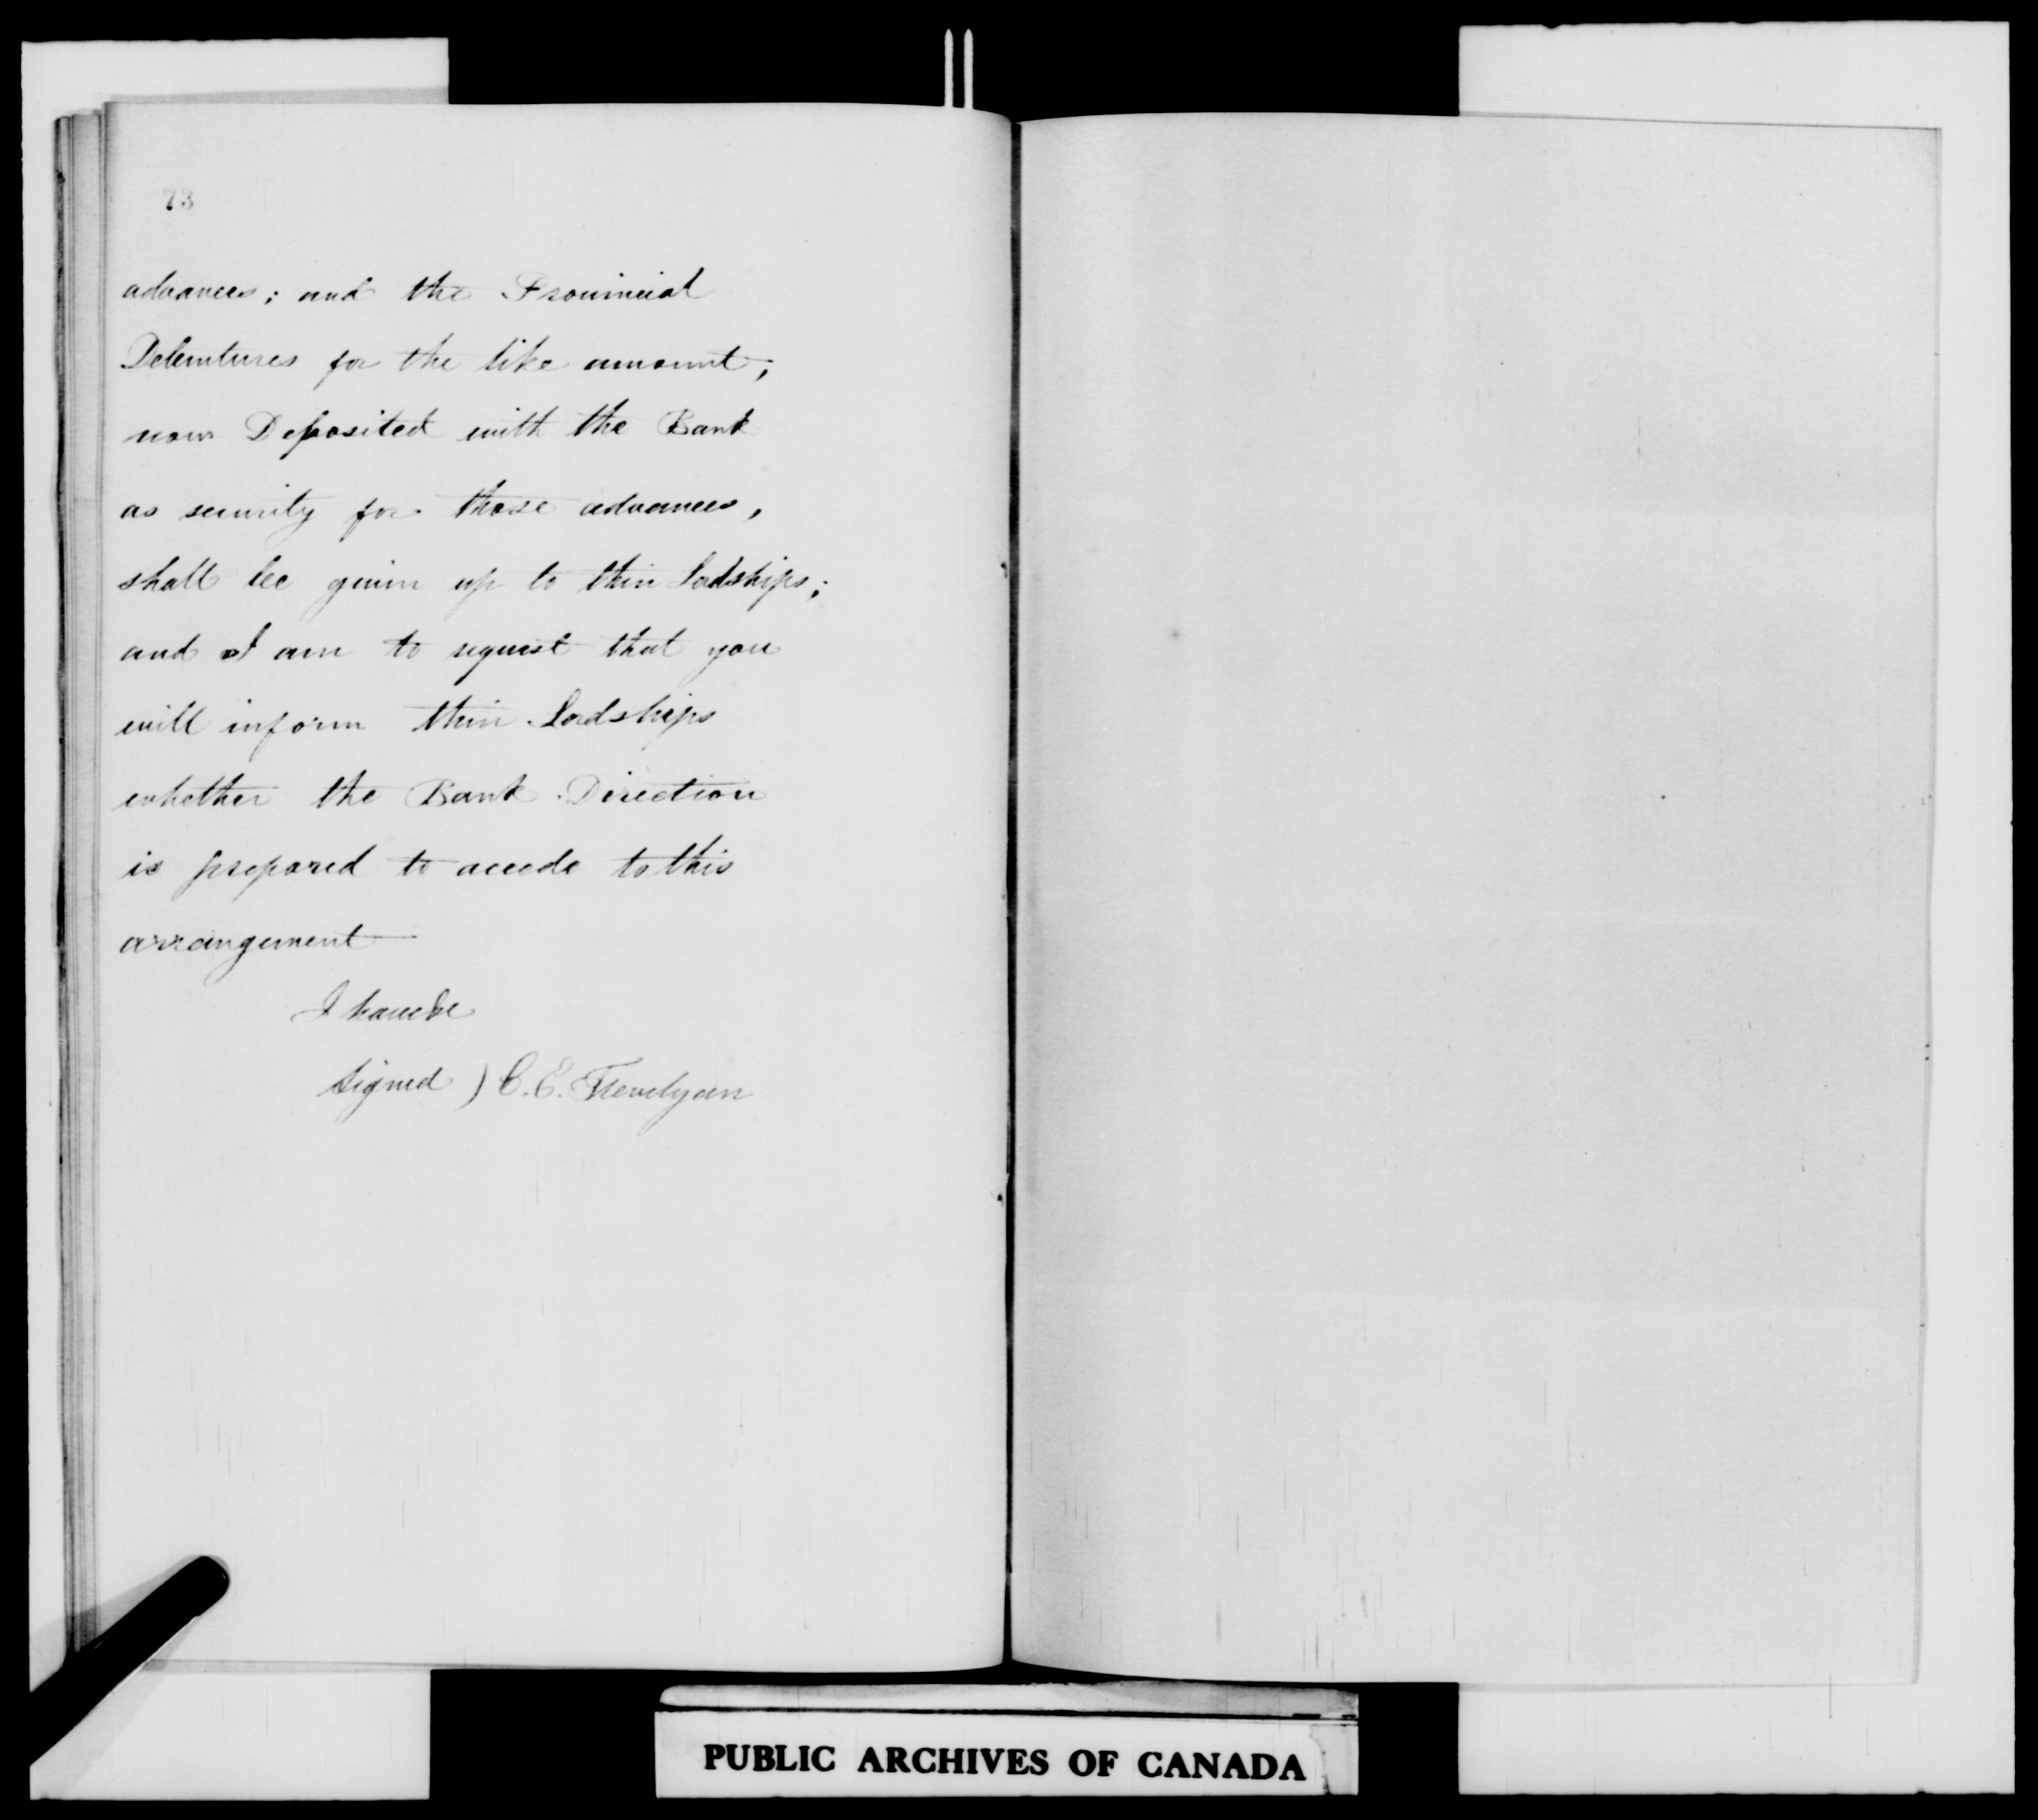 73
advances; and the Provincial
Debentures for the like amount;
now Deposited with the Bank
as security for those advances,
shall be given up to their Lordships;
and I am to request that you
will inform their Lordships
whether the Bank Direction
is prepared to accede to this
arrangement
I have &c
Signed ) C. E. Trevelyan
PUBLIC ARCHIVES OF CANADA